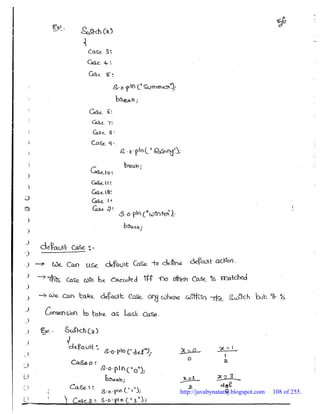 Ex:-
Switch(x)
{
Case 3:
Case 4:
Case 5:
S.o.pln("Summer");
break;
Case 6:
Case 7:
Case 8:
Case 9:
S.o.pln("Rainy");
break;
Case 10:
Case 11:
Case 12:
Case 1:
Case 2:
S.o.pln("winter");
break;
default Case :-
→ We Can use default Case to define default action.
→ This Case will be executed iff no other Case is matched
→ we can take default Case any where within the Switch but it is
Convension to take as last Case.
Ex:- Switch(x)
{
default:
S.o.pln("def");
Case 0:
S.o.pln("0");
break;
Case 1:
S.o.pln("1");
Case 2: S.o.pln("2");
}
x=0
0
x=1
1
2
x=2
2
x=3
def
0
http://javabynataraj.blogspot.com 108 of 255.